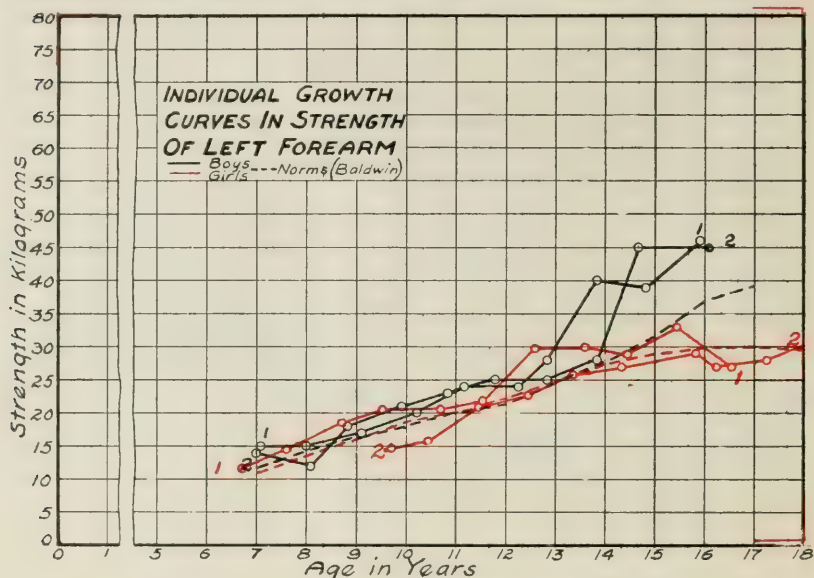 80
75
70
65
60
55
50
45
40
35
30
25
20
15
10
5
0
Strength in Kilograms
INDIVIDUAL GROWTH
CURVES IN STRENGTH
OF LEFT FOREARM
Boys
Girls --- Norms (Baldwin)
1
2
1
2
1
2
1
2
0 1 5 6 7 8 9 10 11 12 13 14 15 16 17 18
Age in Years